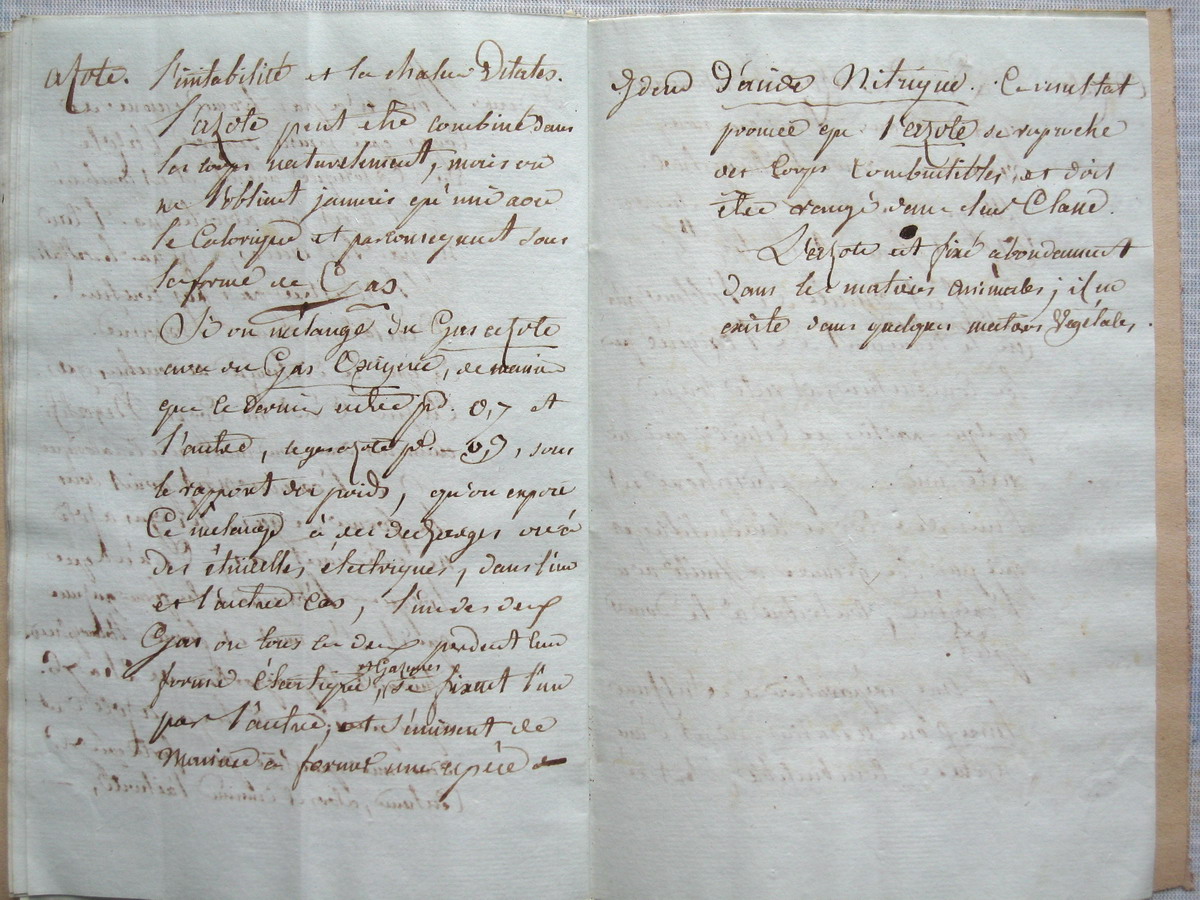 azote. l'iritabilité et la chaleur vitales.
l'azote peut etre combiné dans
les corps naturellement, mais on
ne l'obtient jamais qu'uni avec
le Calorique et par consequent sous
la forme de Gas
Si on mélange du Gas azote
avec du Gas Oxigene, de maniere
que le dernier entre pr. 0,7 et
l'autre, le gas azote pr. 0,3, sous
le rapport des poids, qu'on expose
Ce mélange à des décharges ou à
des étincelles électriques, dans l'un
et l'autre Cas, l'un des deux
Gas ou tous les deux perdent leur
forme élastique, et Gazeuses
se fixent l'un
par l'autre; et s'unissent de
Maniere à former une espèce
Idem d'acide Nitrique. Ce resultat
prouve que l'azote se raproche
des Corps Combustibles, et doit
être rangé dans leur Classe.
L'azote est fixé abondamment
dans les matieres animales; il en
existe dans quelques matieres Végétales.